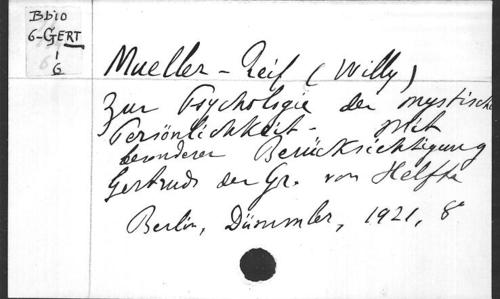 Bbio
6-GERT
1
6
Mueller-Reif (Willy)
Zur Psychologie der mystischen
Persönlichkeit - Mit
besonderer Berücksichtigung
Gertruds der Gr. von Helfta
Berlin, Dümmler, 1921, 8°